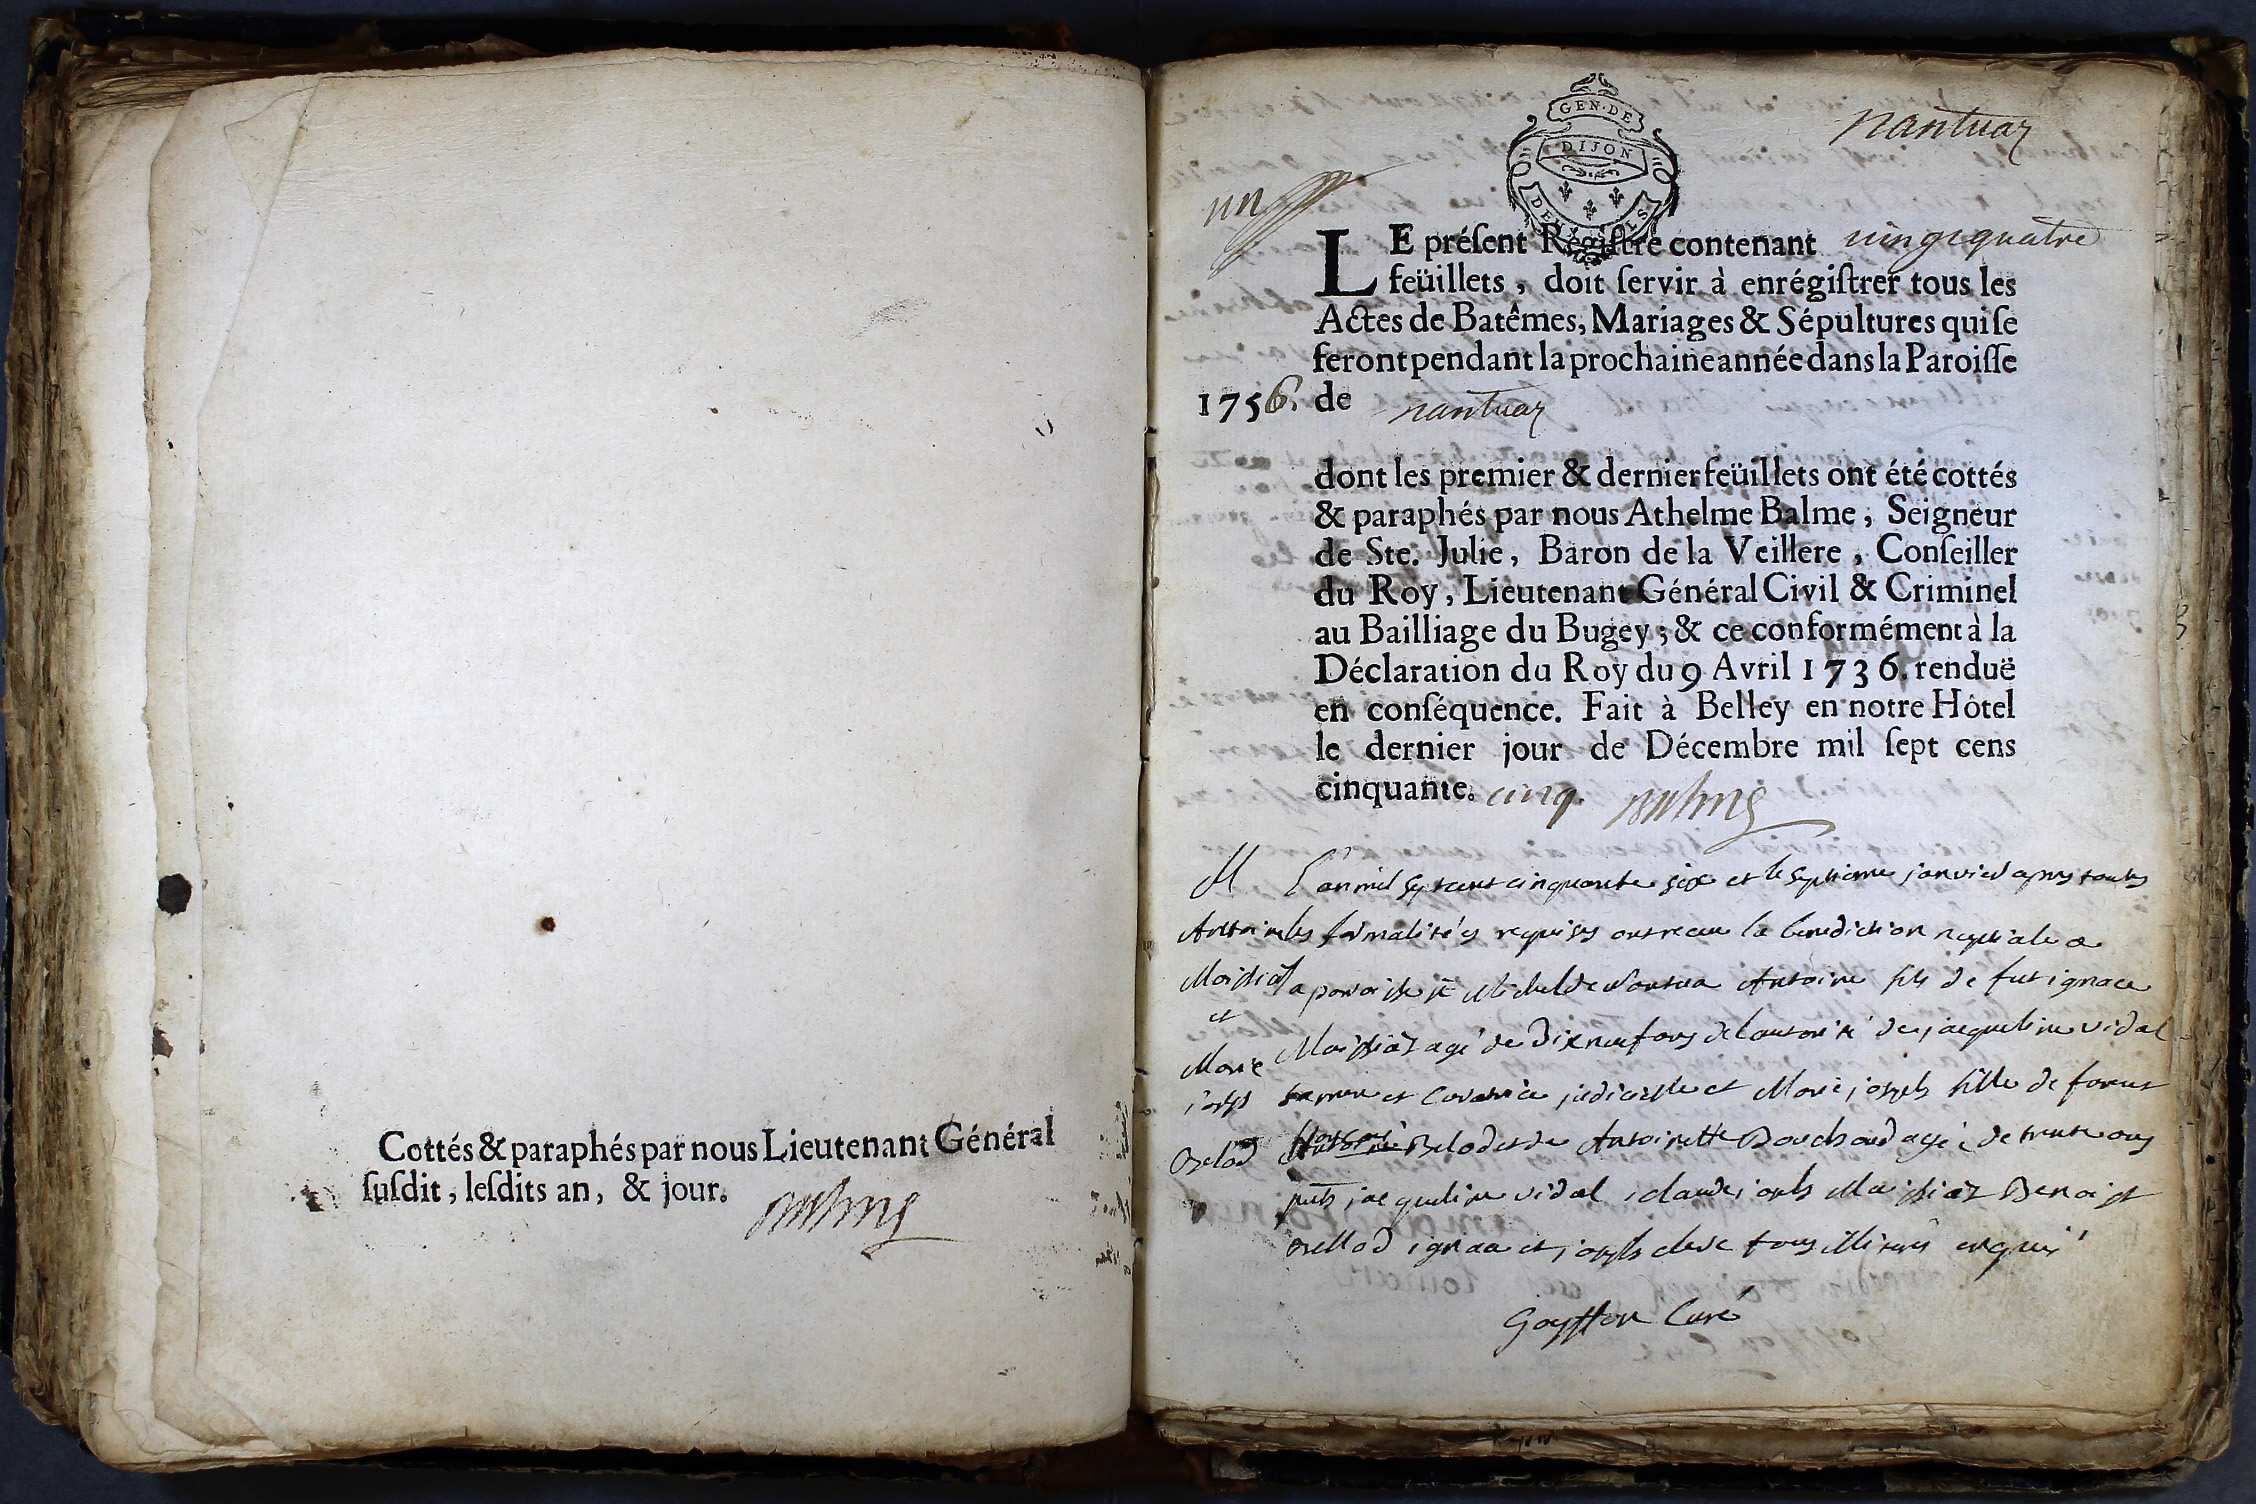 Cottés & paraphés par nous Lieutenant Général
ſuſdit, leſdits an, & jour.
GEN. DE
DIJON
nantuaz
un
LE préſent Regiſtre contenant vingtquatre
feüillets, doit ſervir à enrégiſtrer tous les
Actes de Batêmes, Mariages & Sépultures qui ſe
feront pendant la prochaine année dans la Paroiſſe
1756. de nantuaz
dont les premier & dernier feüillets ont été cottés
& paraphés par nous Athelme Balme, Seigneur
de Ste. Julie, Baron de la Veillere, Conſeiller
du Roy, Lieutenant Général Civil & Criminel
au Bailliage du Bugey; & ce conformément à la
Déclaration du Roy du 9 Avril 1736. renduë
en conſéquence. Fait à Belley en notre Hôtel
le dernier jour de Décembre mil ſept cens
cinquante. cinq. Balme
M L'an mil sept cent cinquante six et le septieme janvier apres toutes
Antoine les formalités requises ont receu la benediction nuptiale a
la paroisse st Michel de Nantua Antoine fils de fut ignace
et
agé de Dixneuf ans de l'autorité de jacqueline vidal
Marie
josph sa mere et Curatrice judicielle et Marie joseph fille de
et de Antoinette Bouchard agée de trente ans
pnts jacqueline vidal, claude joseph Benoist
ignace et joseph tous illiterés enquis
Gouffon Curé